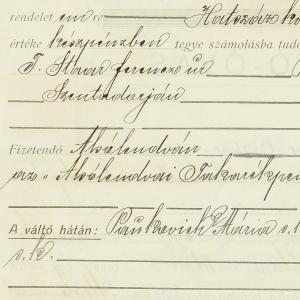 rendelet en re Hatszáz ko
értéke készpénzben tegye számolásba tud
T. Staar ferencz úr
Szentadorján
Fizetendő Alsólendván
az "Alsólendvai Takarékpén
A váltó hátán: Paukovich Mária s.k
s.k.